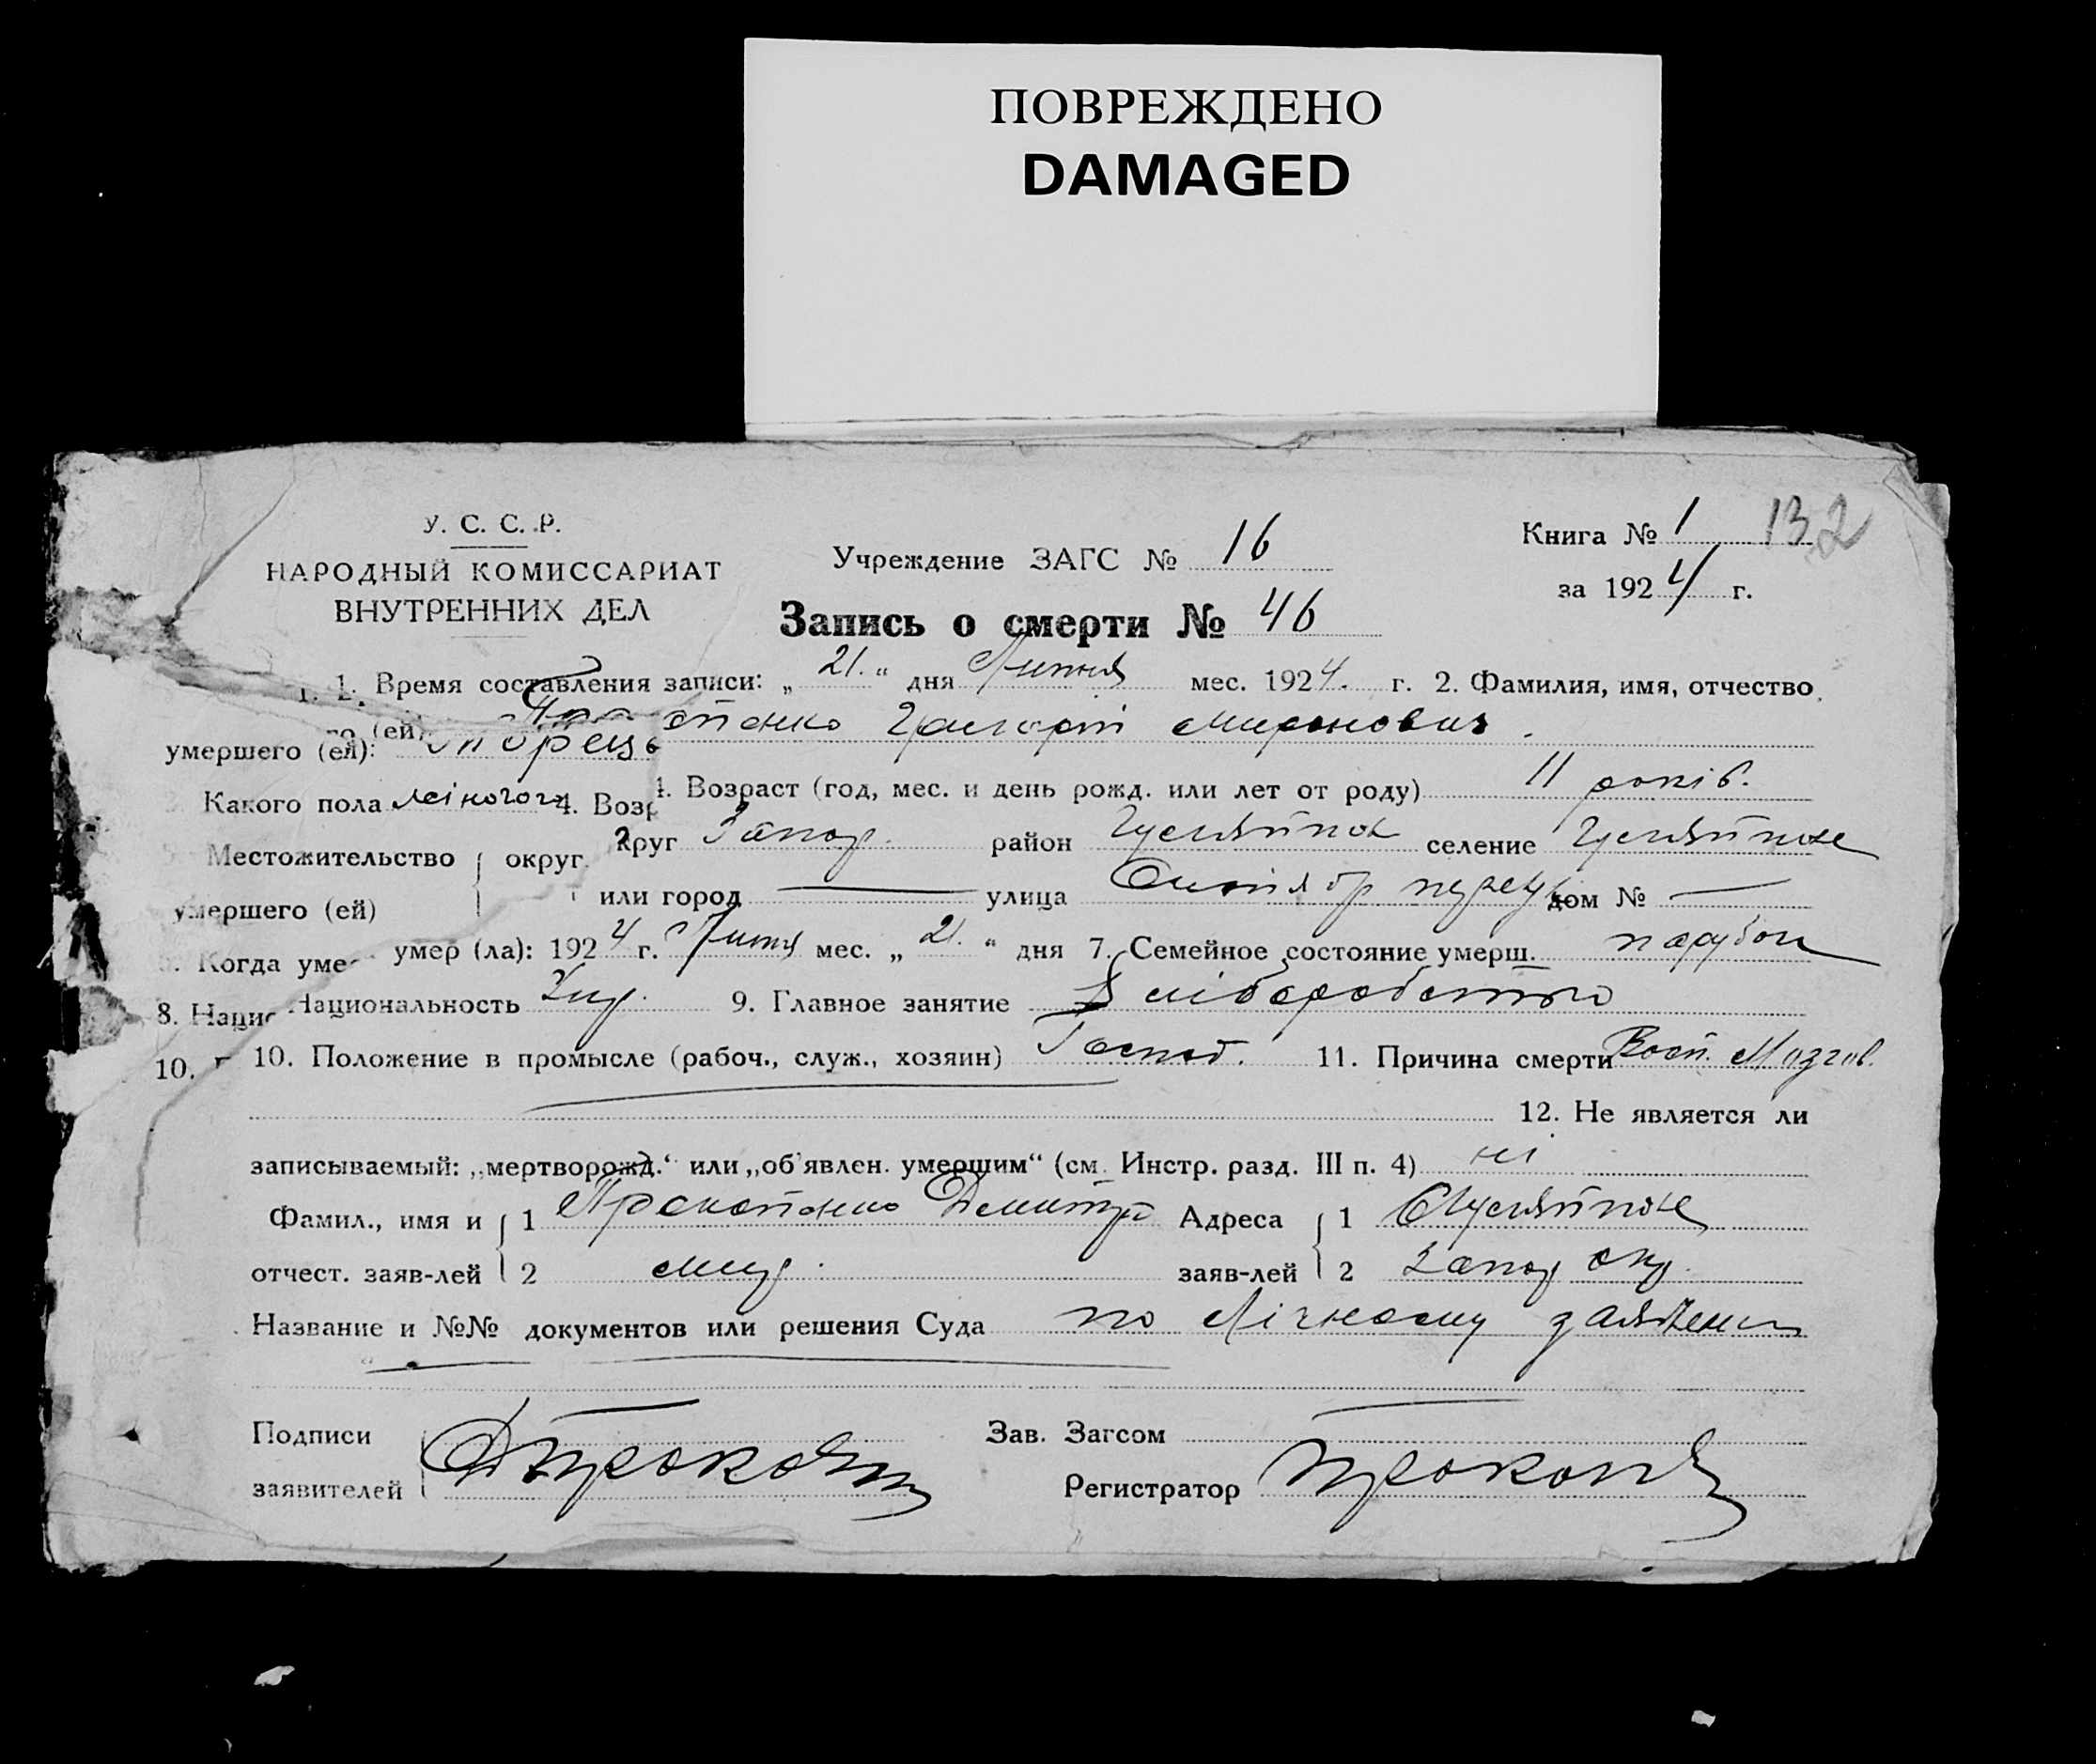 ПОВРЕЖДЕНО
DAMAGED
У. С. С. Р.
НАРОДНЫЙ КОМИССАРИАТ
ВНУТРЕННИХ ДЕЛ
Учреждение ЗАГС № 16
Книга № 1 132
за 1924 г.
Запись о смерти № 46
1. 1. Время составления записи: „ 21. “ дня Липня мес. 1924. г. 2. Фамилия, имя, отчество
умершего (ей): Григорій Миронович.
Какого пола 4. Возр 4. Возраст (год, мес. и день рожд. или лет от роду) 11 років.
Местожительство округ круг Запор. район селение
умершего (ей) или город — улица дом № —
Когда уме умер (ла): 1924 г. Липня мес. „ 21. “ дня 7. Семейное состояние умерш. парубок
8. Нацио Национальность Укр. 9. Главное занятие
10. 10. Положение в промысле (рабоч., служ., хозяин) Господ. 11. Причина смерти Восп. Мозгов.
12. Не является ли
записываемый: „мертворожд.“ или „об'явлен. умершим“ (см. Инстр. разд. III п. 4) ні
Фамил., имя и 1 Демитро Адреса 1
отчест. заяв-лей 2 Мир. заяв-лей 2 Запор Окр.
Название и №№ документов или решения Суда по Лічному заявлению
Подписи Зав. Загсом
заявителей Регистратор